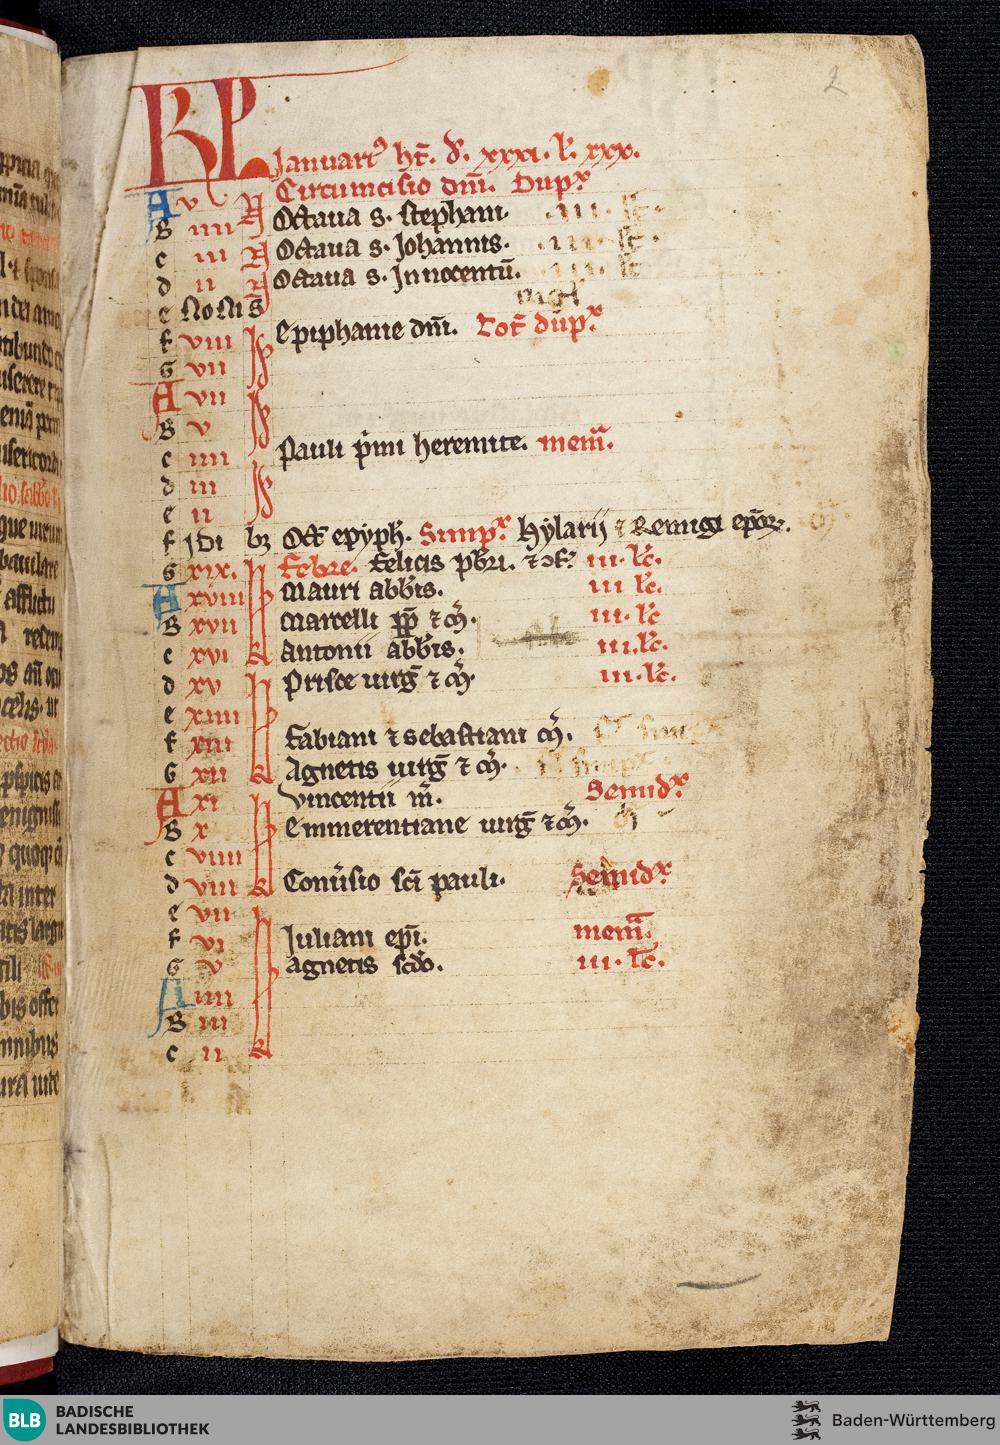 2
KL Januari9 ht̄. d̄. xxxi. l̄. xxx.
A v N Circumcisio dn̄i. Dupx
B iiii Octaua s. stephani. .iii. lc̄.
c iii N Octaua s. Johannis. .iii. lc̄.
d ii N Octaua s. Innocentū. .iii. lc̄.
e NoNis vigl̄
f viii Id Epiphanie dn̄i. Tot̄ dupx
G vii
A vii Id
B v
c iiii Pauli p̄mi heremite. mem̄.
d iii Id
e ii
f Idi bȝ Oct̄ epyph̄. Simpx. Hylarij ⁊ Remigi ep̄oꝝ.
G xix. Febre. Felicis p̄bri. ⁊ ↄf̄. iii. lc̄.
A xviii Mauri abb̄is. iii lc̄.
B xvii Marcelli pp̄ ⁊ m̄. iii. lc̄
c xvi Antonii abb̄is. iii. lc̄.
d xv Prisce uirḡ ⁊ m̄. iii. lc̄.
e xiiii
f xiii Fabiani ⁊ sebastiani m̄.
G xii Agnetis uirḡ ⁊ m̄.
A xi Vincentii m̄. Semidx
B x Emmerentiane uirḡ ⁊ m̄.
c viiii
d viii Conūsio sc̄i pauli. Semidx
e vii
f vi Juliani ep̄i. mem̄.
G v Agnetis sc̄do. iii. lc̄.
A iiii
B iii
c ii
BLB BADISCHE
LANDESBIBLIOTHEK
Baden-Württemberg